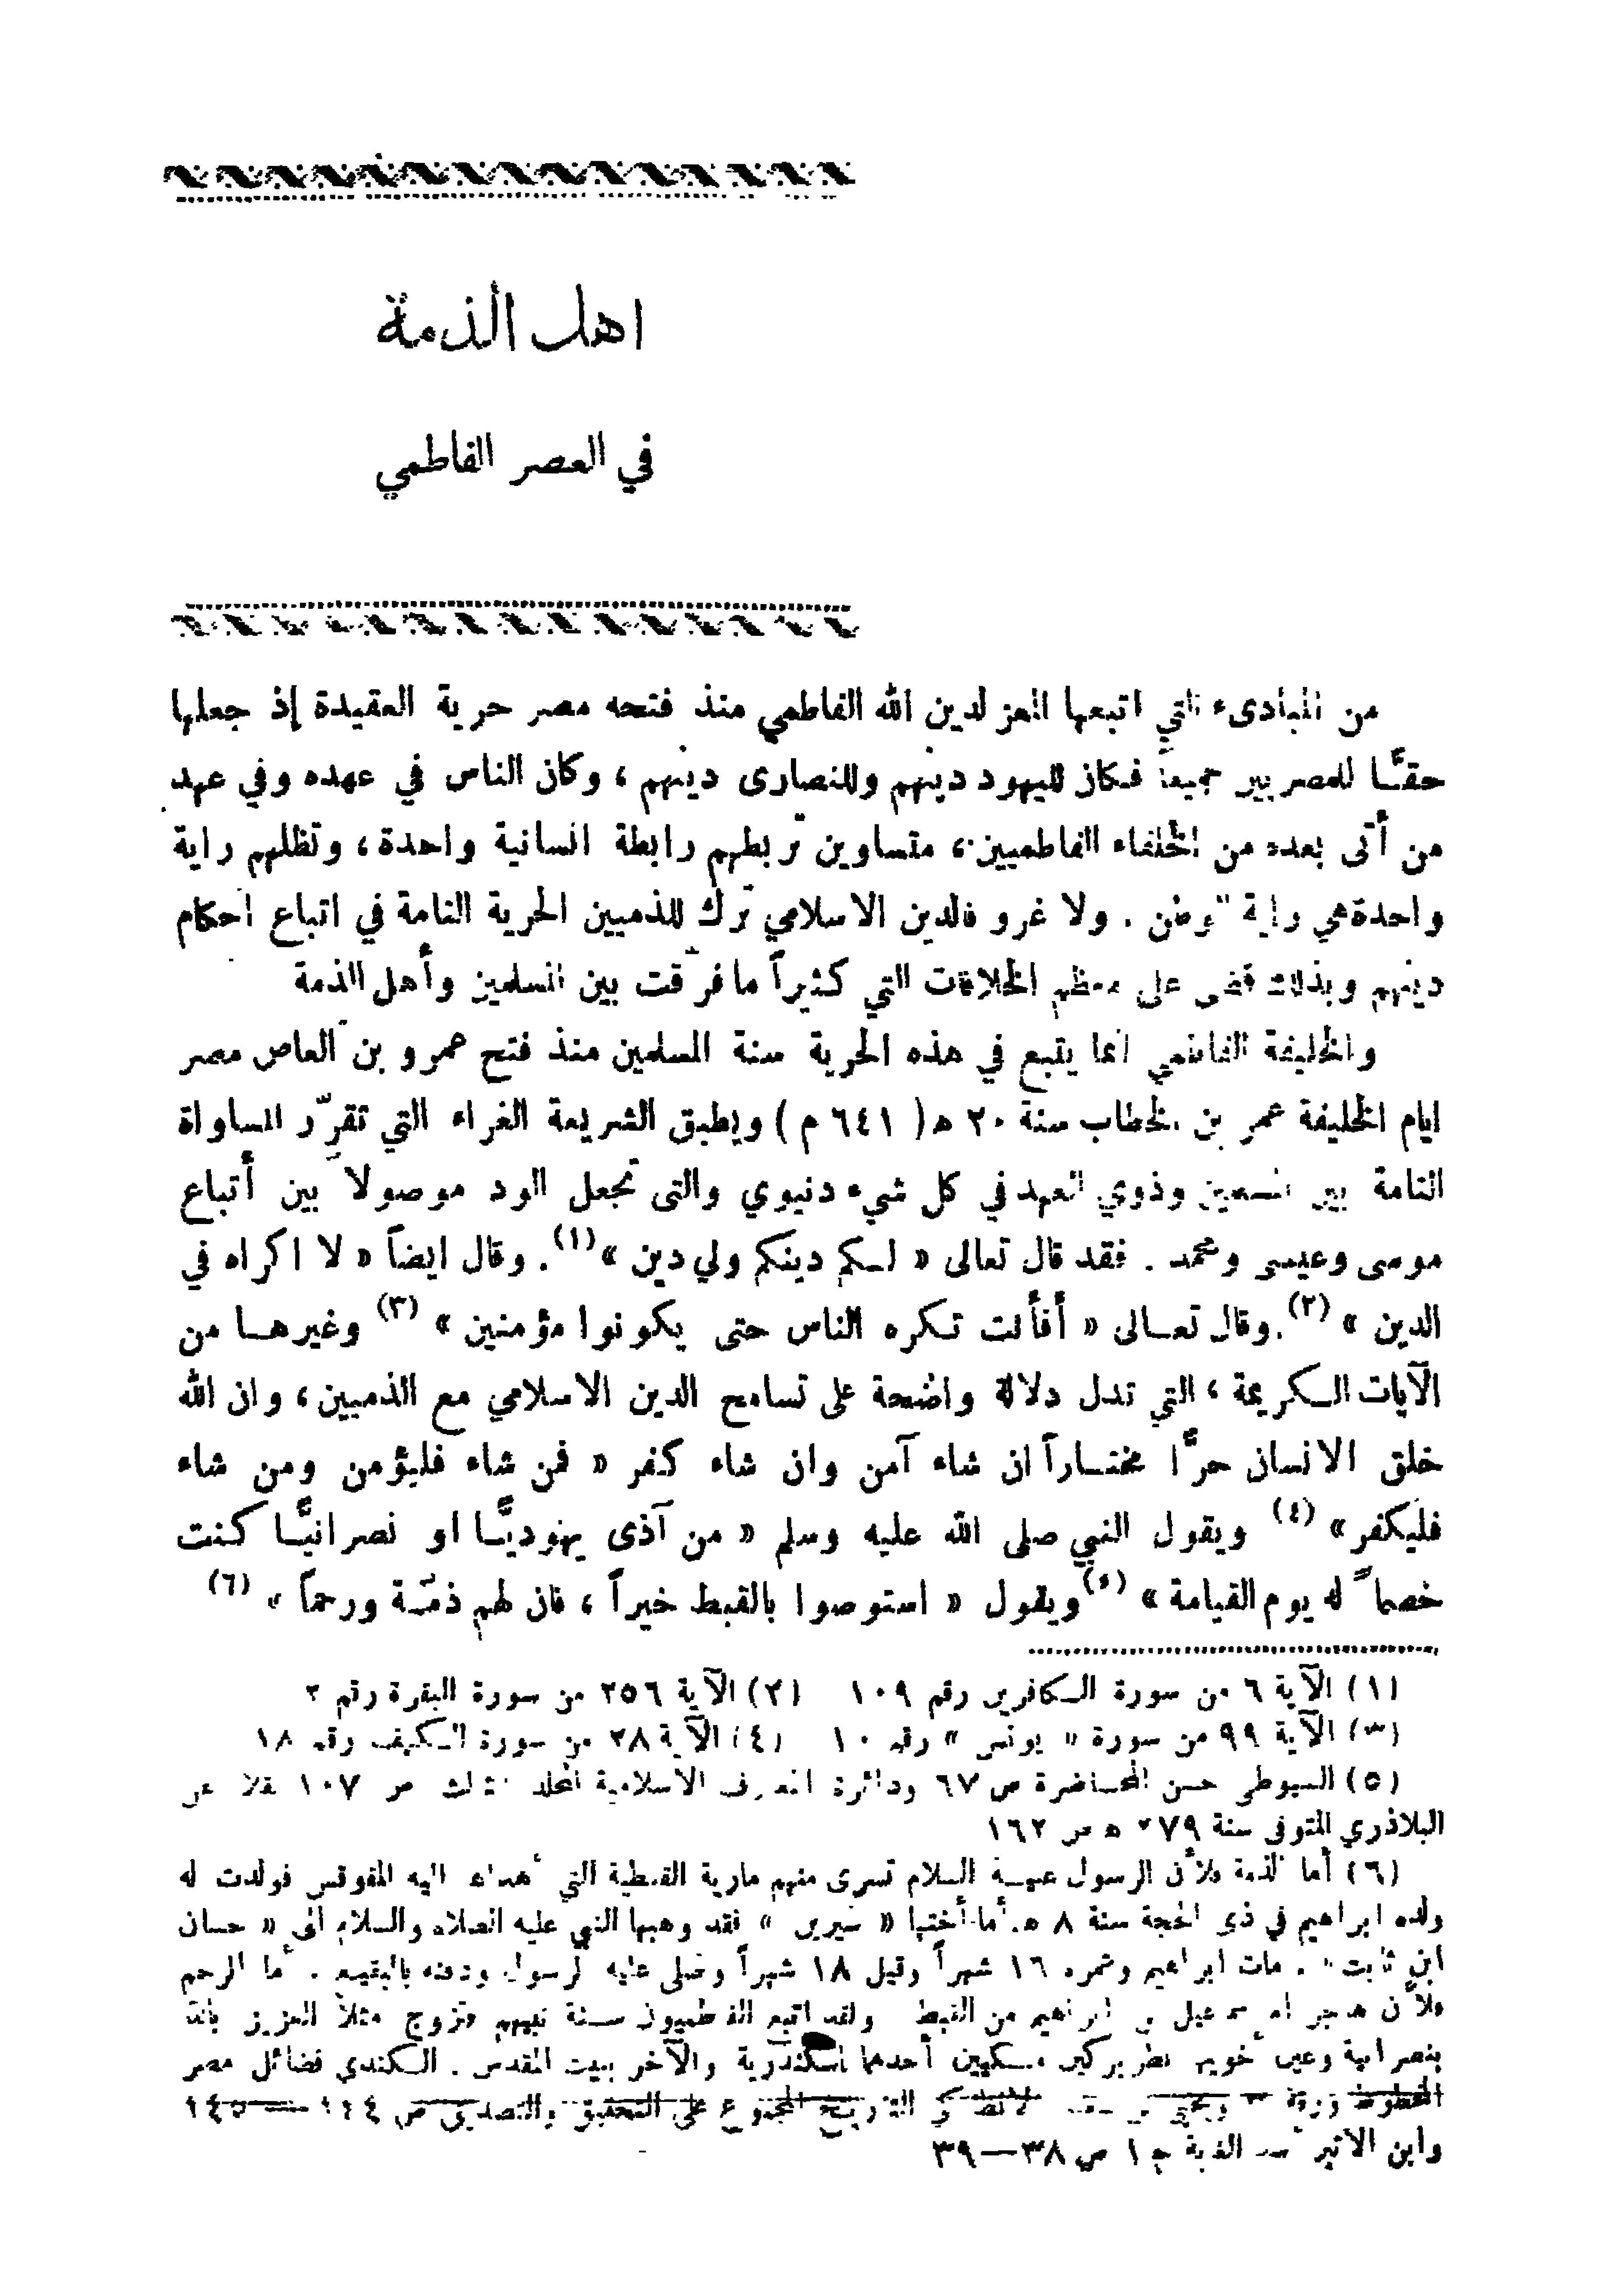 اهل الذمة
في العصر الفاطمي
من المبادىء التي اتبعها المعز لدين الله الفاطمي منذ فتحه مصر حرية العقيدة إذ جعلها
حقًّا للمصريين جميعاً فكان لليهود دينهم وللنصارى دينهم ، وكان الناس في عهده وفي عهد
من أتى بعده من الخلفاء الفاطميين ، متساوين تربطهم رابطة انسانية واحدة ، وتظللهم راية
واحدة هي راية الوطن . ولا غرو فالدين الاسلامي ترك للذميين الحرية التامة في اتباع احكام
دينهم وبذلك قضى على معظم الخلافات التي كثيراً ما فرّقت بين المسلمين وأهل الذمة
والخليفة الفاطمي انما يتبع في هذه الحرية سنة المسلمين منذ فتح عمرو بن العاص مصر
ايام الخليفة عمر بن الخطاب سنة ٢٠ ه ( ٦٤١ م ) ويطبق الشريعة الغراء التي تقرّر المساواة
التامة بين المسلمين وذوي العهد في كل شيء دنيوي والتى تجعل الود موصولاً بين أتباع
موسى وعيسى ومحمد . فقد قال تعالى « لكم دينكم ولي دين » (١) . وقال ايضاً « لا اكراه في
الدين » (٢) . وقال تعالى « أفأنت تكره الناس حتى يكونوا مؤمنين » (٣) وغيرها من
الآيات الكريمة ، التي تدل دلالة واضحة على تسامح الدين الاسلامي مع الذميين ، وان الله
خلق الانسان حرًّا مختاراً ان شاء آمن وان شاء كفر « فمن شاء فليؤمن ومن شاء
فليكفر » (٤) ويقول النبي صلى الله عليه وسلم « من آذى يهوديًّا او نصرانيًّا كنت
خصماً له يوم القيامة » (٥) ويقول « استوصوا بالقبط خيراً ، فان لهم ذمّة ورحماً » (٦)
(١) الآية ٦ من سورة الكافرين رقم ١٠٩ (٢) الآية ٢٥٦ من سورة البقرة رقم ٢
(٣) الآية ٩٩ من سورة « يونس » رقم ١٠ (٤) الآية ٢٨ من سورة الكهف رقم ١٨
(٥) السيوطي حسن المحاضرة ص ٦٧ ودائرة المعارف الاسلامية المجلد الثالث ص ١٠٧ نقلا عن
البلاذري المتوفى سنة ٢٧٩ ه ص ١٦٢
(٦) أما الذمة فلأن الرسول عليه السلام تسرى منهم مارية القبطية التي أهداها اليه المقوقس فولدت له
ولده ابراهيم في ذي الحجة سنة ٨ ه . أما أختها « شيرين » فقد وهبها النبي عليه الصلاة والسلام الى « حسان
ابن ثابت » . مات ابراهيم وعمره ١٦ شهراً وقيل ١٨ شهراً وصلى عليه الرسول ودفنه بالبقيع . أما الرحم
فلأن هاجر ام اسماعيل بن ابراهيم من القبط ولقد اتبع الفاطميون سنة نبيهم فتزوج مثلاً العزيز بالله
بنصرانية وعين أخويها بطريركين ملكيين أحدهما باسكندرية والآخر ببيت المقدس . الكندي فضائل مصر
المخطوط ورقة ٣ ويحيى بن التاريخ المجموع على التحقيق والتصديق ص ١٤٤ — ١٤٥
وابن الاثير أسد الغابة ج ١ ص ٣٨ — ٣٩